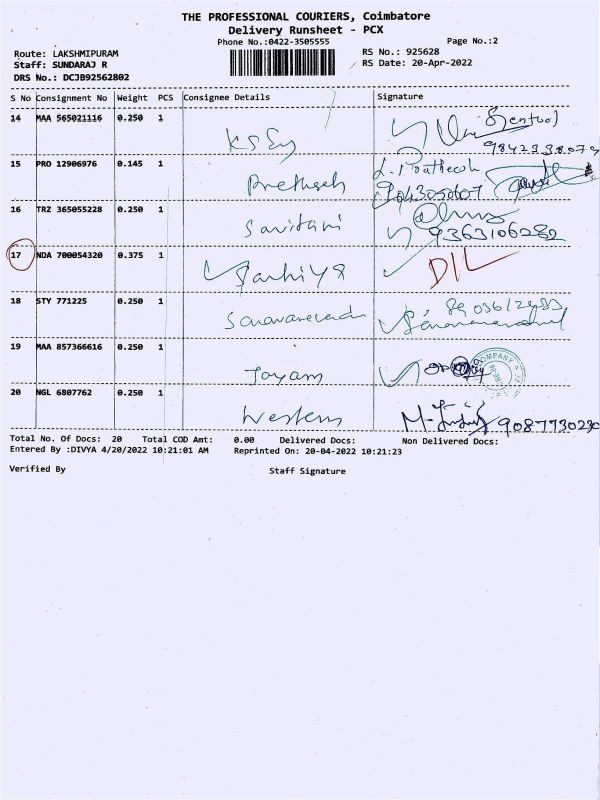 THE PROFESSIONAL COURIERS, Coimbatore
Delivery Runsheet - PCX
Phone No.:0422-3505555 Page No.:2
Route: LAKSHMIPURAM RS No.: 925628
Staff: SUNDARAJ R RS Date: 20-Apr-2022
DRS No.: DCJB92562802
S No Consignment No Weight PCS Consignee Details Signature
14 MAA 565021116 0.250 1
15 PRO 12906976 0.145 1
16 TRZ 365055228 0.250 1 Savitani
9363106282
17 NDA 700054320 0.375 1 Sathiya DIL
18 STY 771225 0.250 1
19 MAA 857366616 0.250 1 Jayam COMPANY
20 NGL 6807762 0.250 1 Western 9087730230
Total No. Of Docs: 20 Total COD Amt: 0.00 Delivered Docs: Non Delivered Docs:
Entered By :DIVYA 4/20/2022 10:21:01 AM Reprinted On: 20-04-2022 10:21:23
Verified By Staff Signature